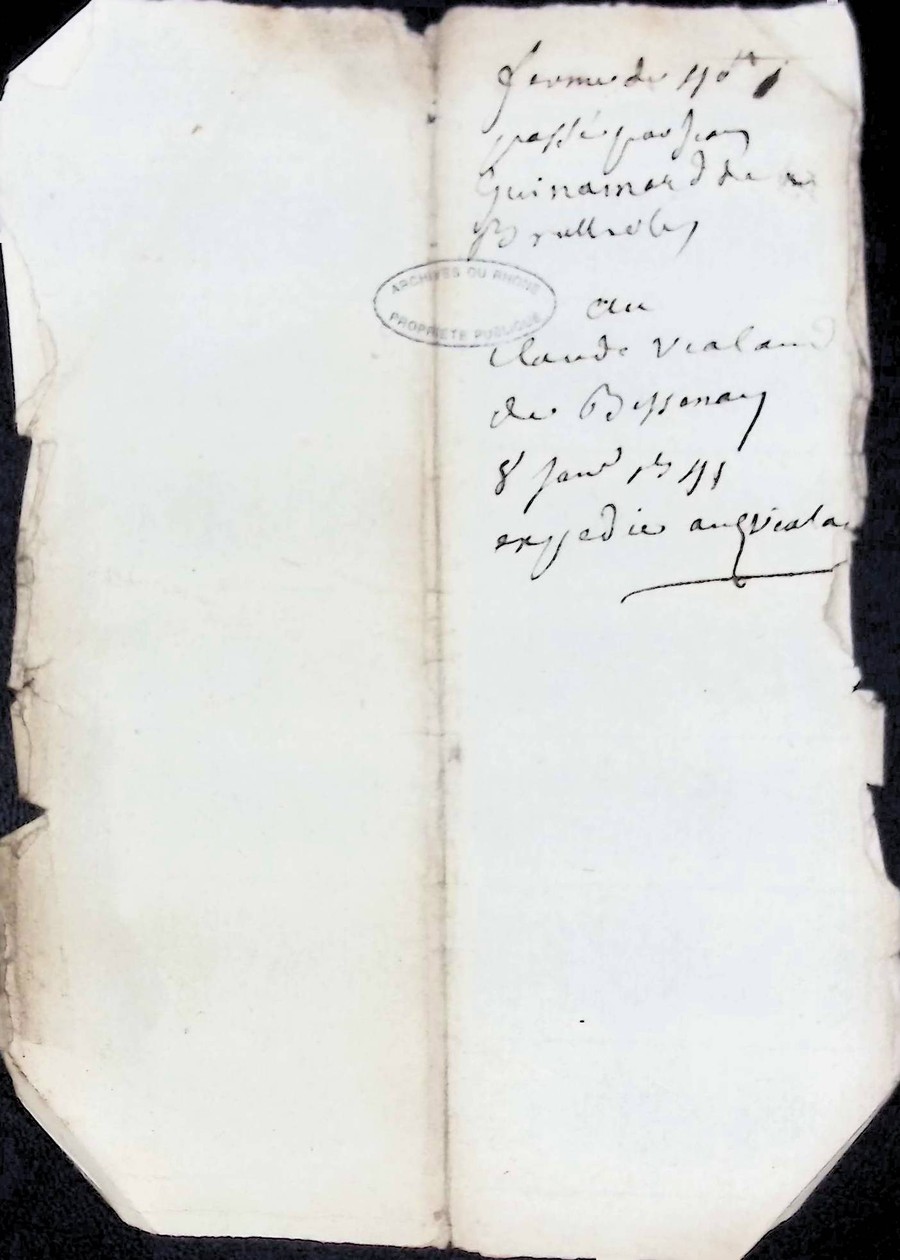 ferme de
passé par Jean
Guinamard de
Brullioles
ARCHIVES DU RHONE
PROPRIÉTÉ PUBLIQUE
au
Claude Vialand
de Bessenay
8 janr
expedie au Viala